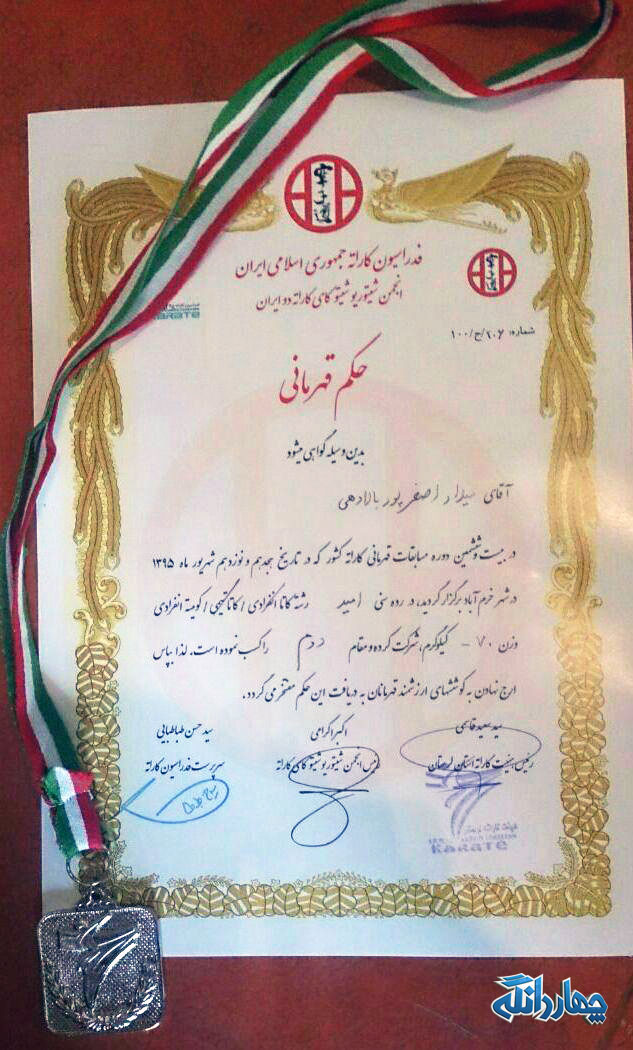 فدراسیون کاراته جمهوری اسلامی ایران
انجمن شیتوریو شیتوکای کاراته دو ایران
KARATE
شماره: ۱۰۰/ح/۲۰۶
حکم قهرمانی
بدین وسیله گواهی میشود
آقای میلاد اصغرپور بالادهی
در بیست و ششمین دوره مسابقات قهرمانی کاراته کشور که در تاریخ هجدهم و نوزدهم شهریور ماه ۱۳۹۵
در شهر خرم آباد برگزار گردید، در رده سنی امید رشته کاتا انفرادی / کاتا تیمی / کومیته انفرادی
وزن ۷۰ - کیلوگرم، شرکت کرده و مقام دوم را کسب نموده است. لذا بپاس
ارج نهادن به کوششهای ارزشمند قهرمانان به دریافت این حکم مفتخر می گردد.
سید سعید قاسمی
رئیس هیئت کاراته استان لرستان
اکبر اکرامی
رئیس انجمن شیتوریو شیتوکای کاراته
سید حسن طباطبایی
سرپرست فدراسیون کاراته
KARATE
چهاردانگه